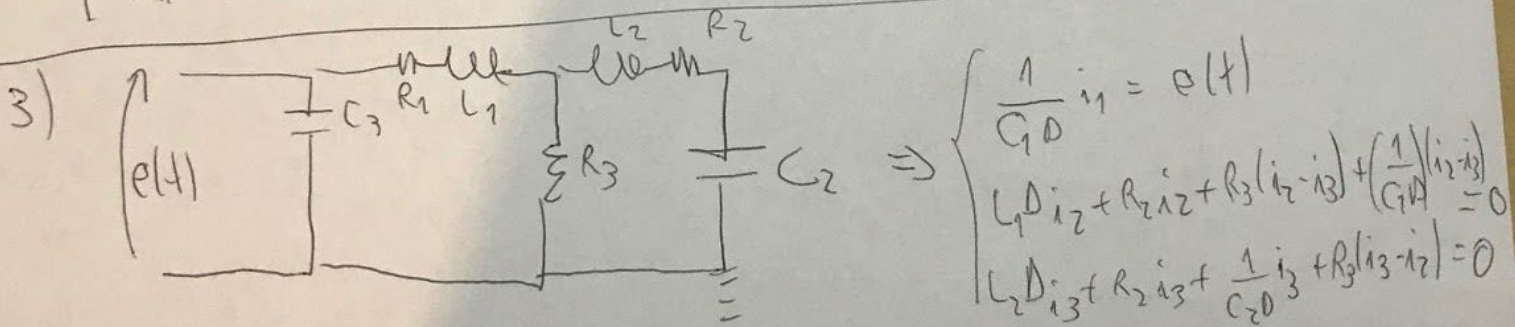 3)
e(t)
C3
R1 L1
L2 R2
R3
C2
⇒ { 1/(C1D) i1 = e(t)
L1Di2 + R2i2 + R3(i2-i3) + (1/(C1D))(i2-i3) = 0
L2Di3 + R2i3 + 1/(C2D) i3 + R3(i3-i2) = 0